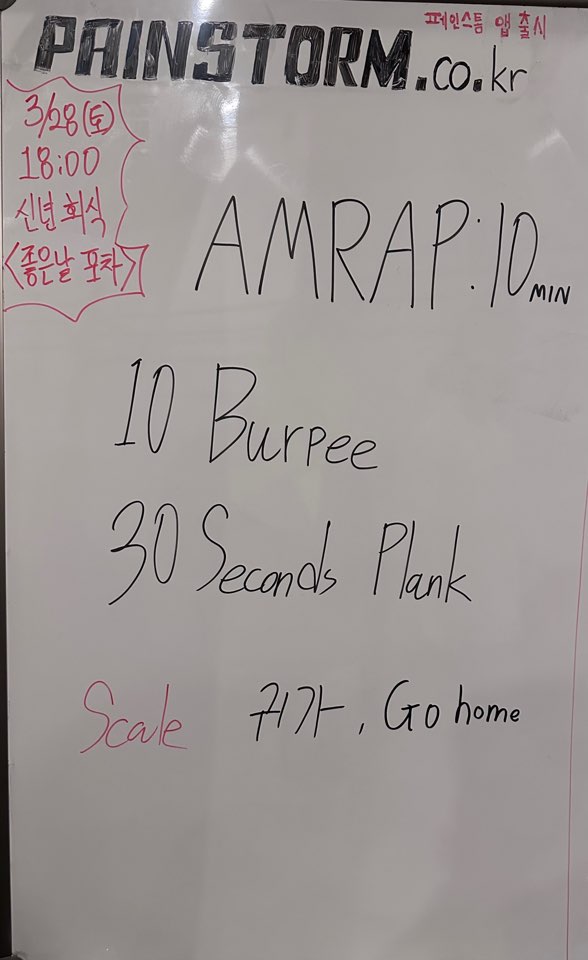 페인스톰 앱 출시
PAINSTORM.co.kr
3/28(토)
18:00
신년회식
<좋은날 포차>
AMRAP:10 MIN
10 Burpee
30 Seconds Plank
Scale 귀가, Go home